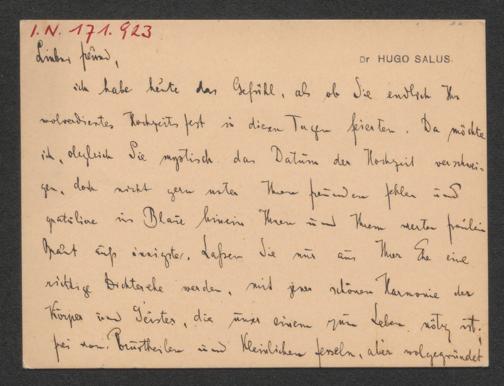 I.N. 171.923
Dr HUGO SALUS.
Lieber Freund,
ich habe heute das Gefühl, als ob Sie endlich Ihr
wolverdientes Hochzeitsfest in diesen Tagen feierten. Da möchte
ich, obgleich Sie mystisch das Datum der Hochzeit verschwei-
gen, doch nicht gern unter Ihren Freunden fehlen und
gratuliere ins Blaue hinein Ihnen und Ihrem werten Fräulein
Braut aufs innigste. Laßen Sie nur aus Ihrer Ehe eine
richtige Dichterehe werden, mit jener schönen Harmonie der
Körper und Geister, die unser einem zum Leben nötig ist,
frei von Vorurtheilen und kleinlichen Fesseln, aber wolgegründet